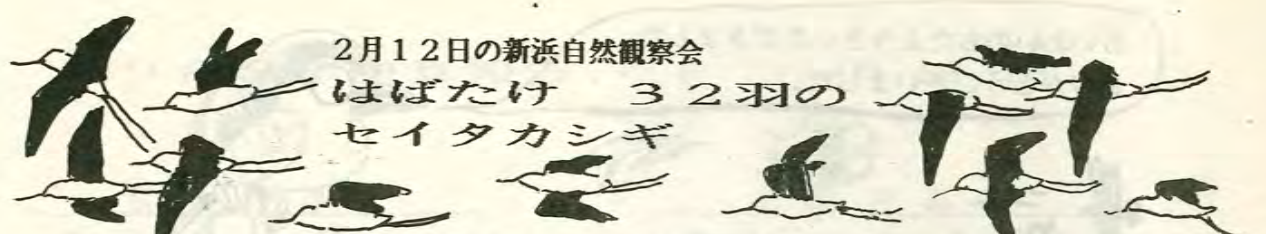 2月12日の新浜自然観察会
はばたけ　32羽の
セイタカシギ